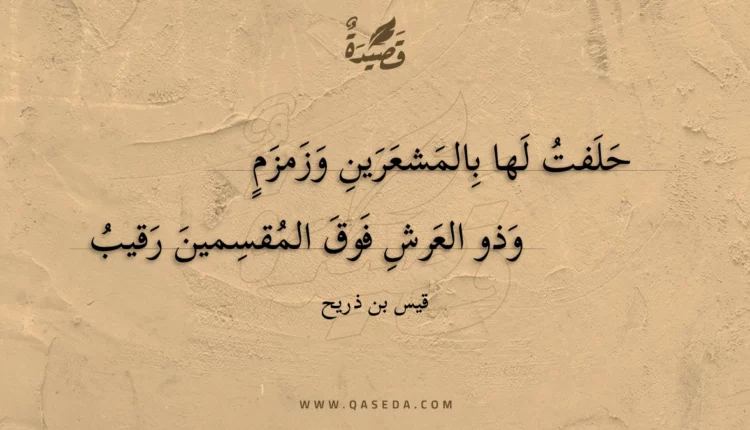 قَصِيدَةٌ
حَلَفتُ لَها بِالمَشعَرَينِ وَزَمزَمٍ
وَذو العَرشِ فَوقَ المُقسِمينَ رَقيبُ
قيس بن ذريح
WWW.QASEDA.COM